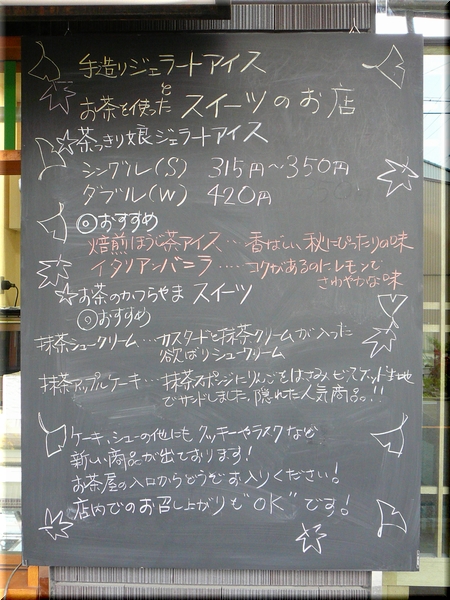 手造りジェラートアイス
と
お茶を使った スイーツのお店
茶っきり娘ジェラートアイス
シングル(S) 315円～350円
ダブル(W) 420円
◎おすすめ
焙煎ほうじ茶アイス…香ばしい、秋にぴったりの味
イタリアンバニラ‥‥コクがあるのにレモンで
さわやかな味
お茶のかつらやま スイーツ
◎おすすめ
抹茶シュークリーム…カスタードと抹茶クリームが入った
欲ばりシュークリーム
抹茶アップルケーキ…抹茶スポンジにりんごをはさみ、ビスケット生地
でサンドしました。隠れた人気商品!!
ケーキ、シューの他にもクッキーやラスクなど
新しい商品が出ております!
お茶屋の入口からどうぞお入りください!
店内でのお召し上がりも"OK"です!